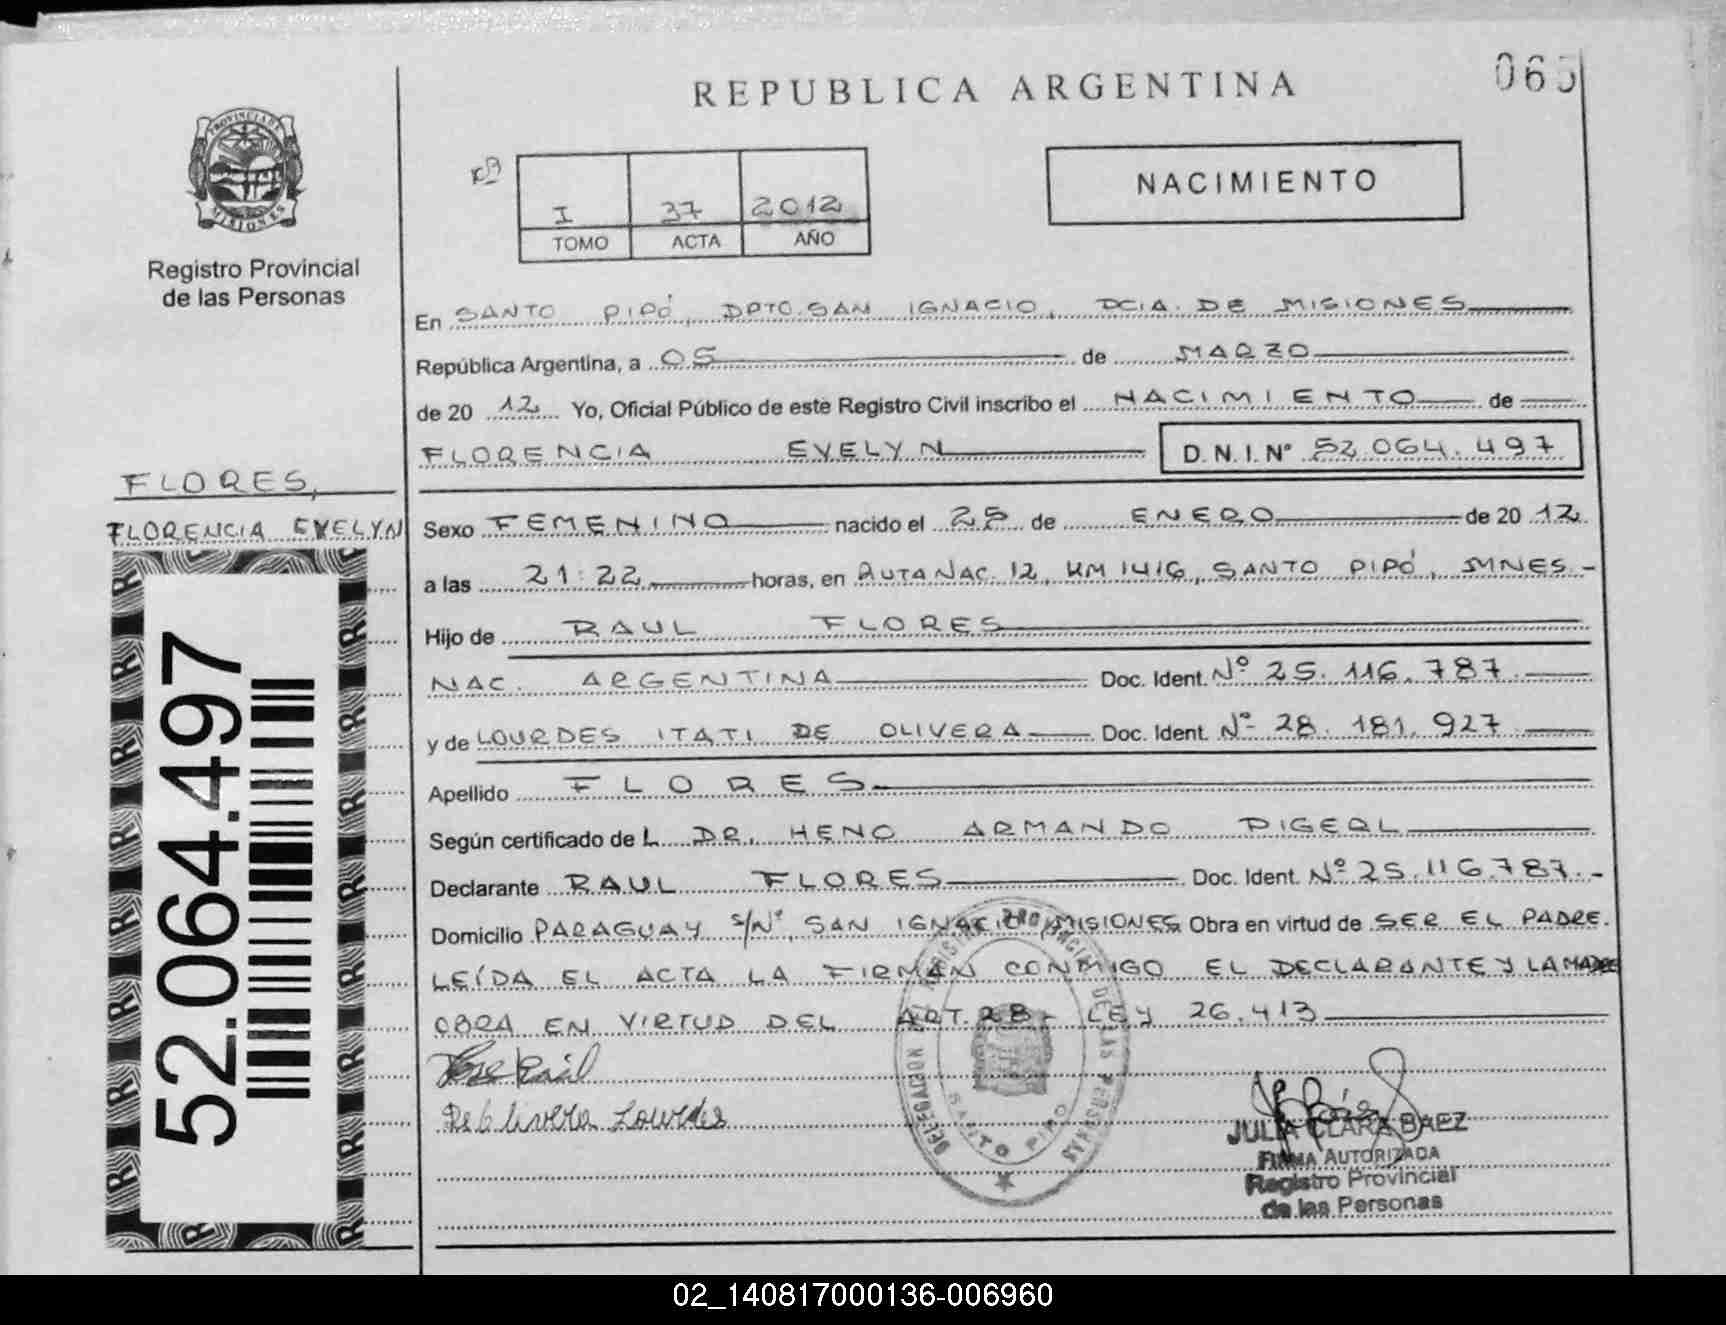 065
REPUBLICA ARGENTINA
PROVINCIA DE MISIONES
Registro Provincial
de las Personas
I 37 2012
TOMO ACTA AÑO
NACIMIENTO
En SANTO PIPÓ, DPTO. SAN IGNACIO, PCIA. DE MISIONES
República Argentina, a 05 de MARZO
de 2012 Yo, Oficial Público de este Registro Civil inscribo el NACIMIENTO de
FLORENCIA EVELYN D.N.I. N° 52.064.497
FLORES,
FLORENCIA EVELYN
52.064.497
Sexo FEMENINO nacido el 25 de ENERO de 2012
a las 21:22 horas, en RUTA NAC. 12, KM 1416, SANTO PIPÓ, MNES.-
Hijo de RAUL FLORES
NAC. ARGENTINA Doc. Ident. Nº 25.116.787.
y de LOURDES ITATI DE OLIVERA Doc. Ident. Nº 28.181.927
Apellido FLORES
Según certificado de L DR. HENO ARMANDO PIGERL
Declarante RAUL FLORES Doc. Ident. Nº 25.116.787.-
Domicilio PARAGUAY S/Nº, SAN IGNACIO, MISIONES Obra en virtud de SER EL PADRE.
LEÍDA EL ACTA LA FIRMAN CONMIGO EL DECLARANTE Y LA MADRE
OBRA EN VIRTUD DEL ART. 28- LEY 26.413
De Olivera Lourdes
DELEGACION REGISTRO PROVINCIAL DE LAS PERSONAS
SANTO PIPO
JULIA CLARA BAEZ
FIRMA AUTORIZADA
Registro Provincial
de las Personas
02_140817000136-006960